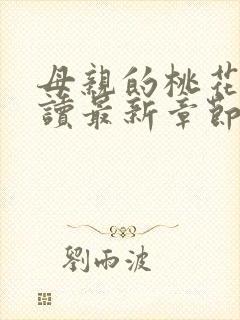 母親的桃花
讀最新章節
劉雨波